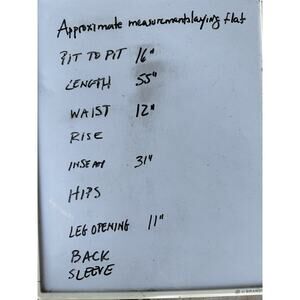 Approximate measurement laying flat
PIT TO PIT 16"
LENGTH 55"
WAIST 12"
RISE
INSEAM 31"
HIPS
LEG OPENING 11"
BACK
SLEEVE